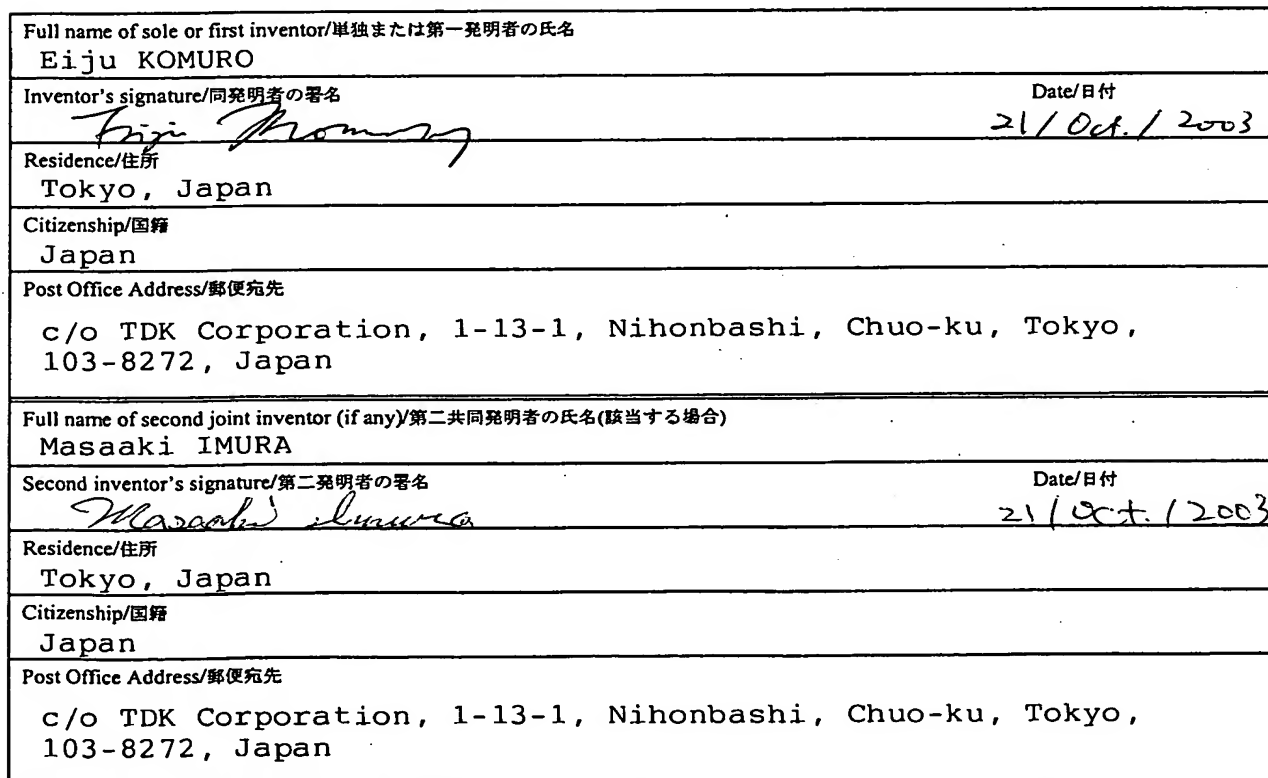 Full name of sole or first inventor/単独または第一発明者の氏名
Eiju KOMURO
Inventor's signature/同発明者の署名 Date/日付
Eiju Komuro 21/Oct./2003
Residence/住所
Tokyo, Japan
Citizenship/国籍
Japan
Post Office Address/郵便宛先
c/o TDK Corporation, 1-13-1, Nihonbashi, Chuo-ku, Tokyo,
103-8272, Japan
Full name of second joint inventor (if any)/第二共同発明者の氏名(該当する場合)
Masaaki IMURA
Second inventor's signature/第二発明者の署名 Date/日付
Masaaki Imura 21/Oct./2003
Residence/住所
Tokyo, Japan
Citizenship/国籍
Japan
Post Office Address/郵便宛先
c/o TDK Corporation, 1-13-1, Nihonbashi, Chuo-ku, Tokyo,
103-8272, Japan